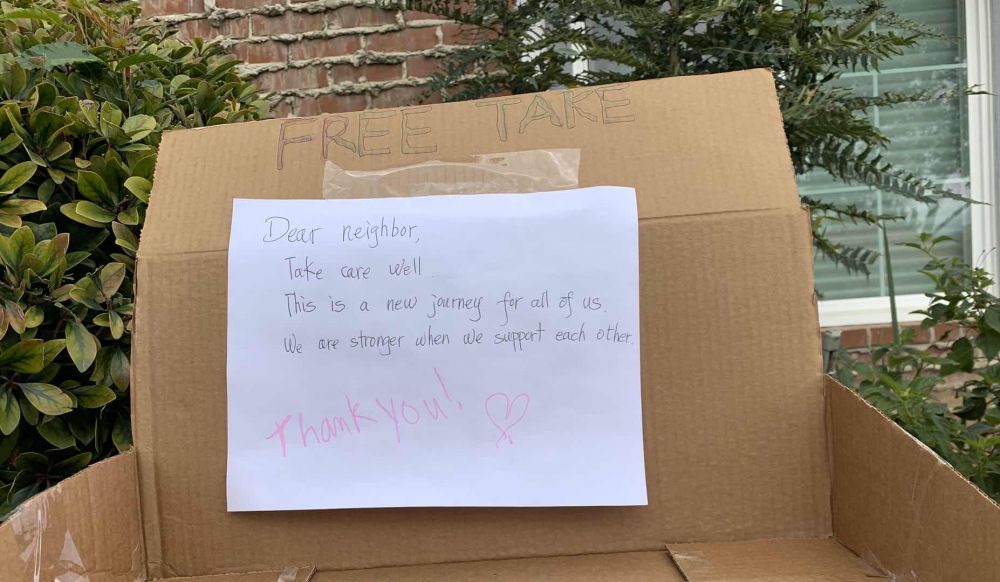 FREE TAKE
Dear neighbor,
Take care well.
This is a new journey for all of us.
We are stronger when we support each other.
Thank you!